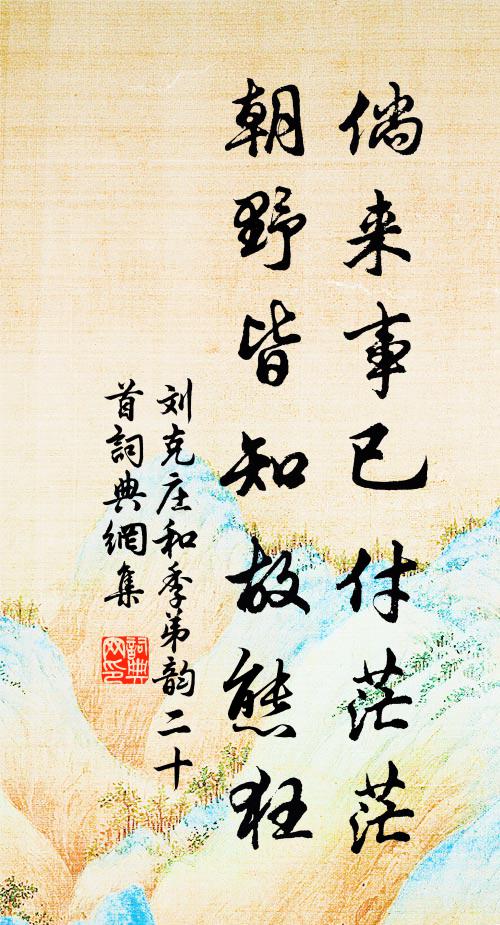 倘来事已付茫茫
朝野皆知故熊狂
刘克庄和季弟韵二十
首詞典網集
詞典網印